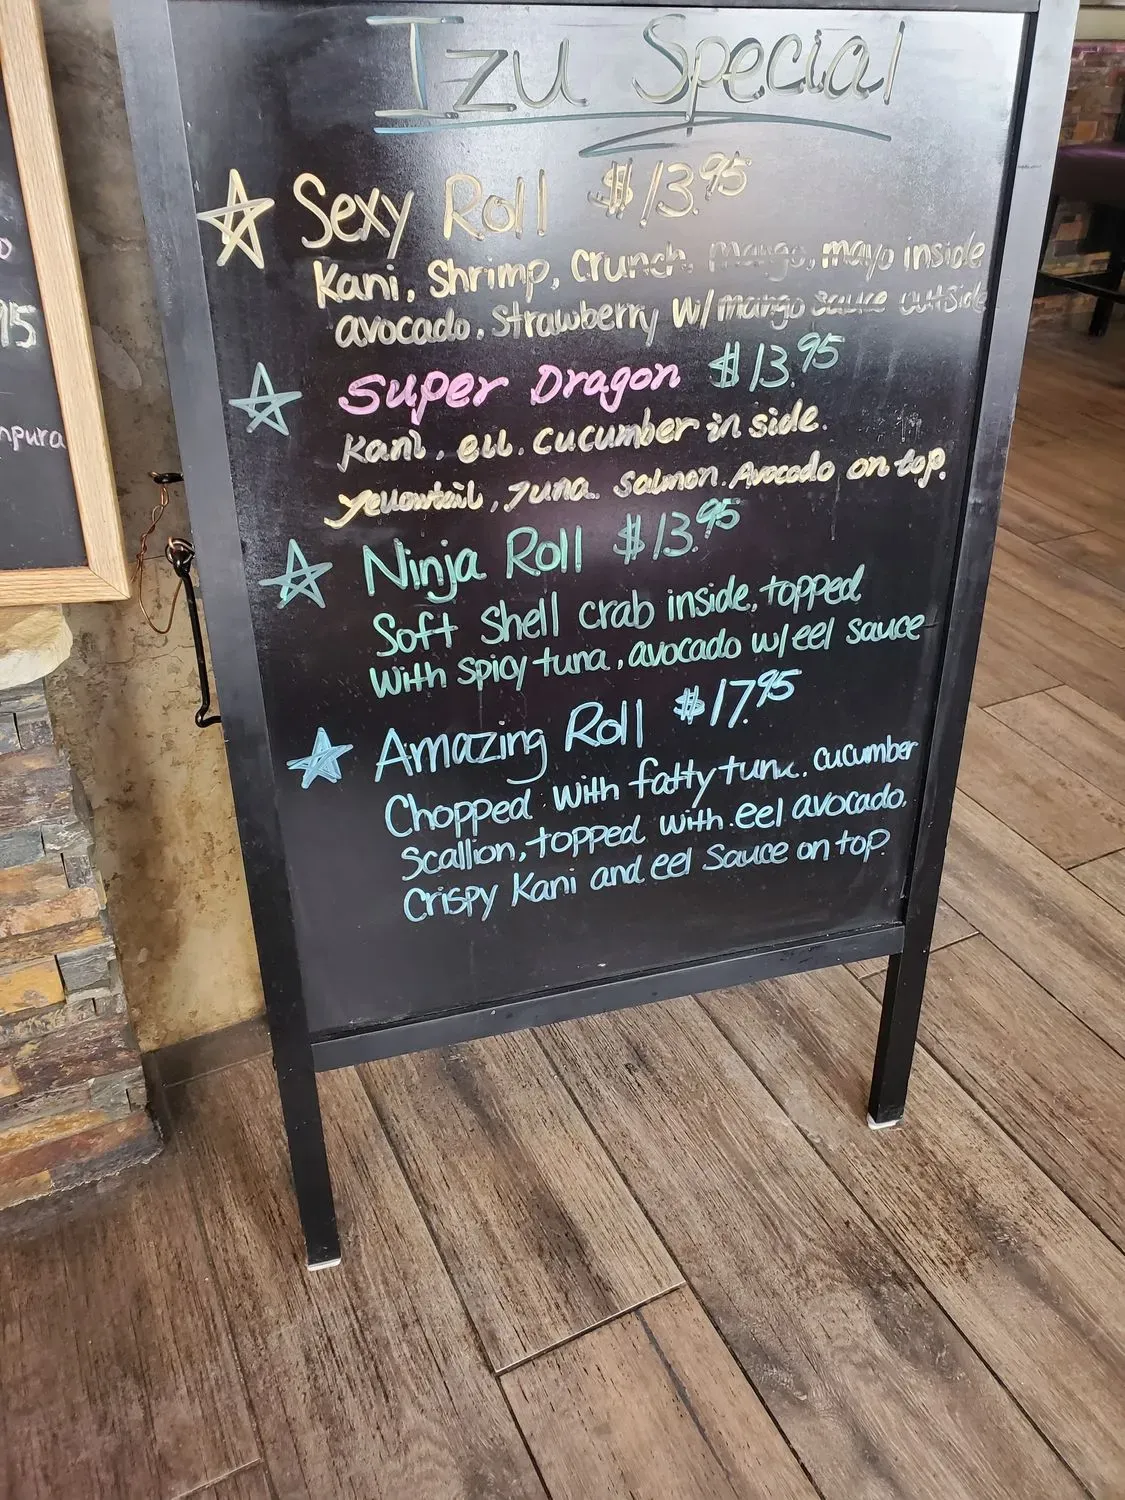 Izu Special
Sexy Roll $13.95
Kani, Shrimp, Crunch, mango, mayo inside
avocado, Strawberry w/mango sauce outside
Super Dragon $13.95
Kani, ell. cucumber inside.
Yellowtail, Tuna. Salmon. Avocado on top.
Ninja Roll $13.95
Soft Shell crab inside, topped
With spicy tuna, avocado w/eel sauce
Amazing Roll $17.95
Chopped with fatty tuna. cucumber
Scallion, topped with eel avocado.
Crispy Kani and eel Sauce on top
95
npura